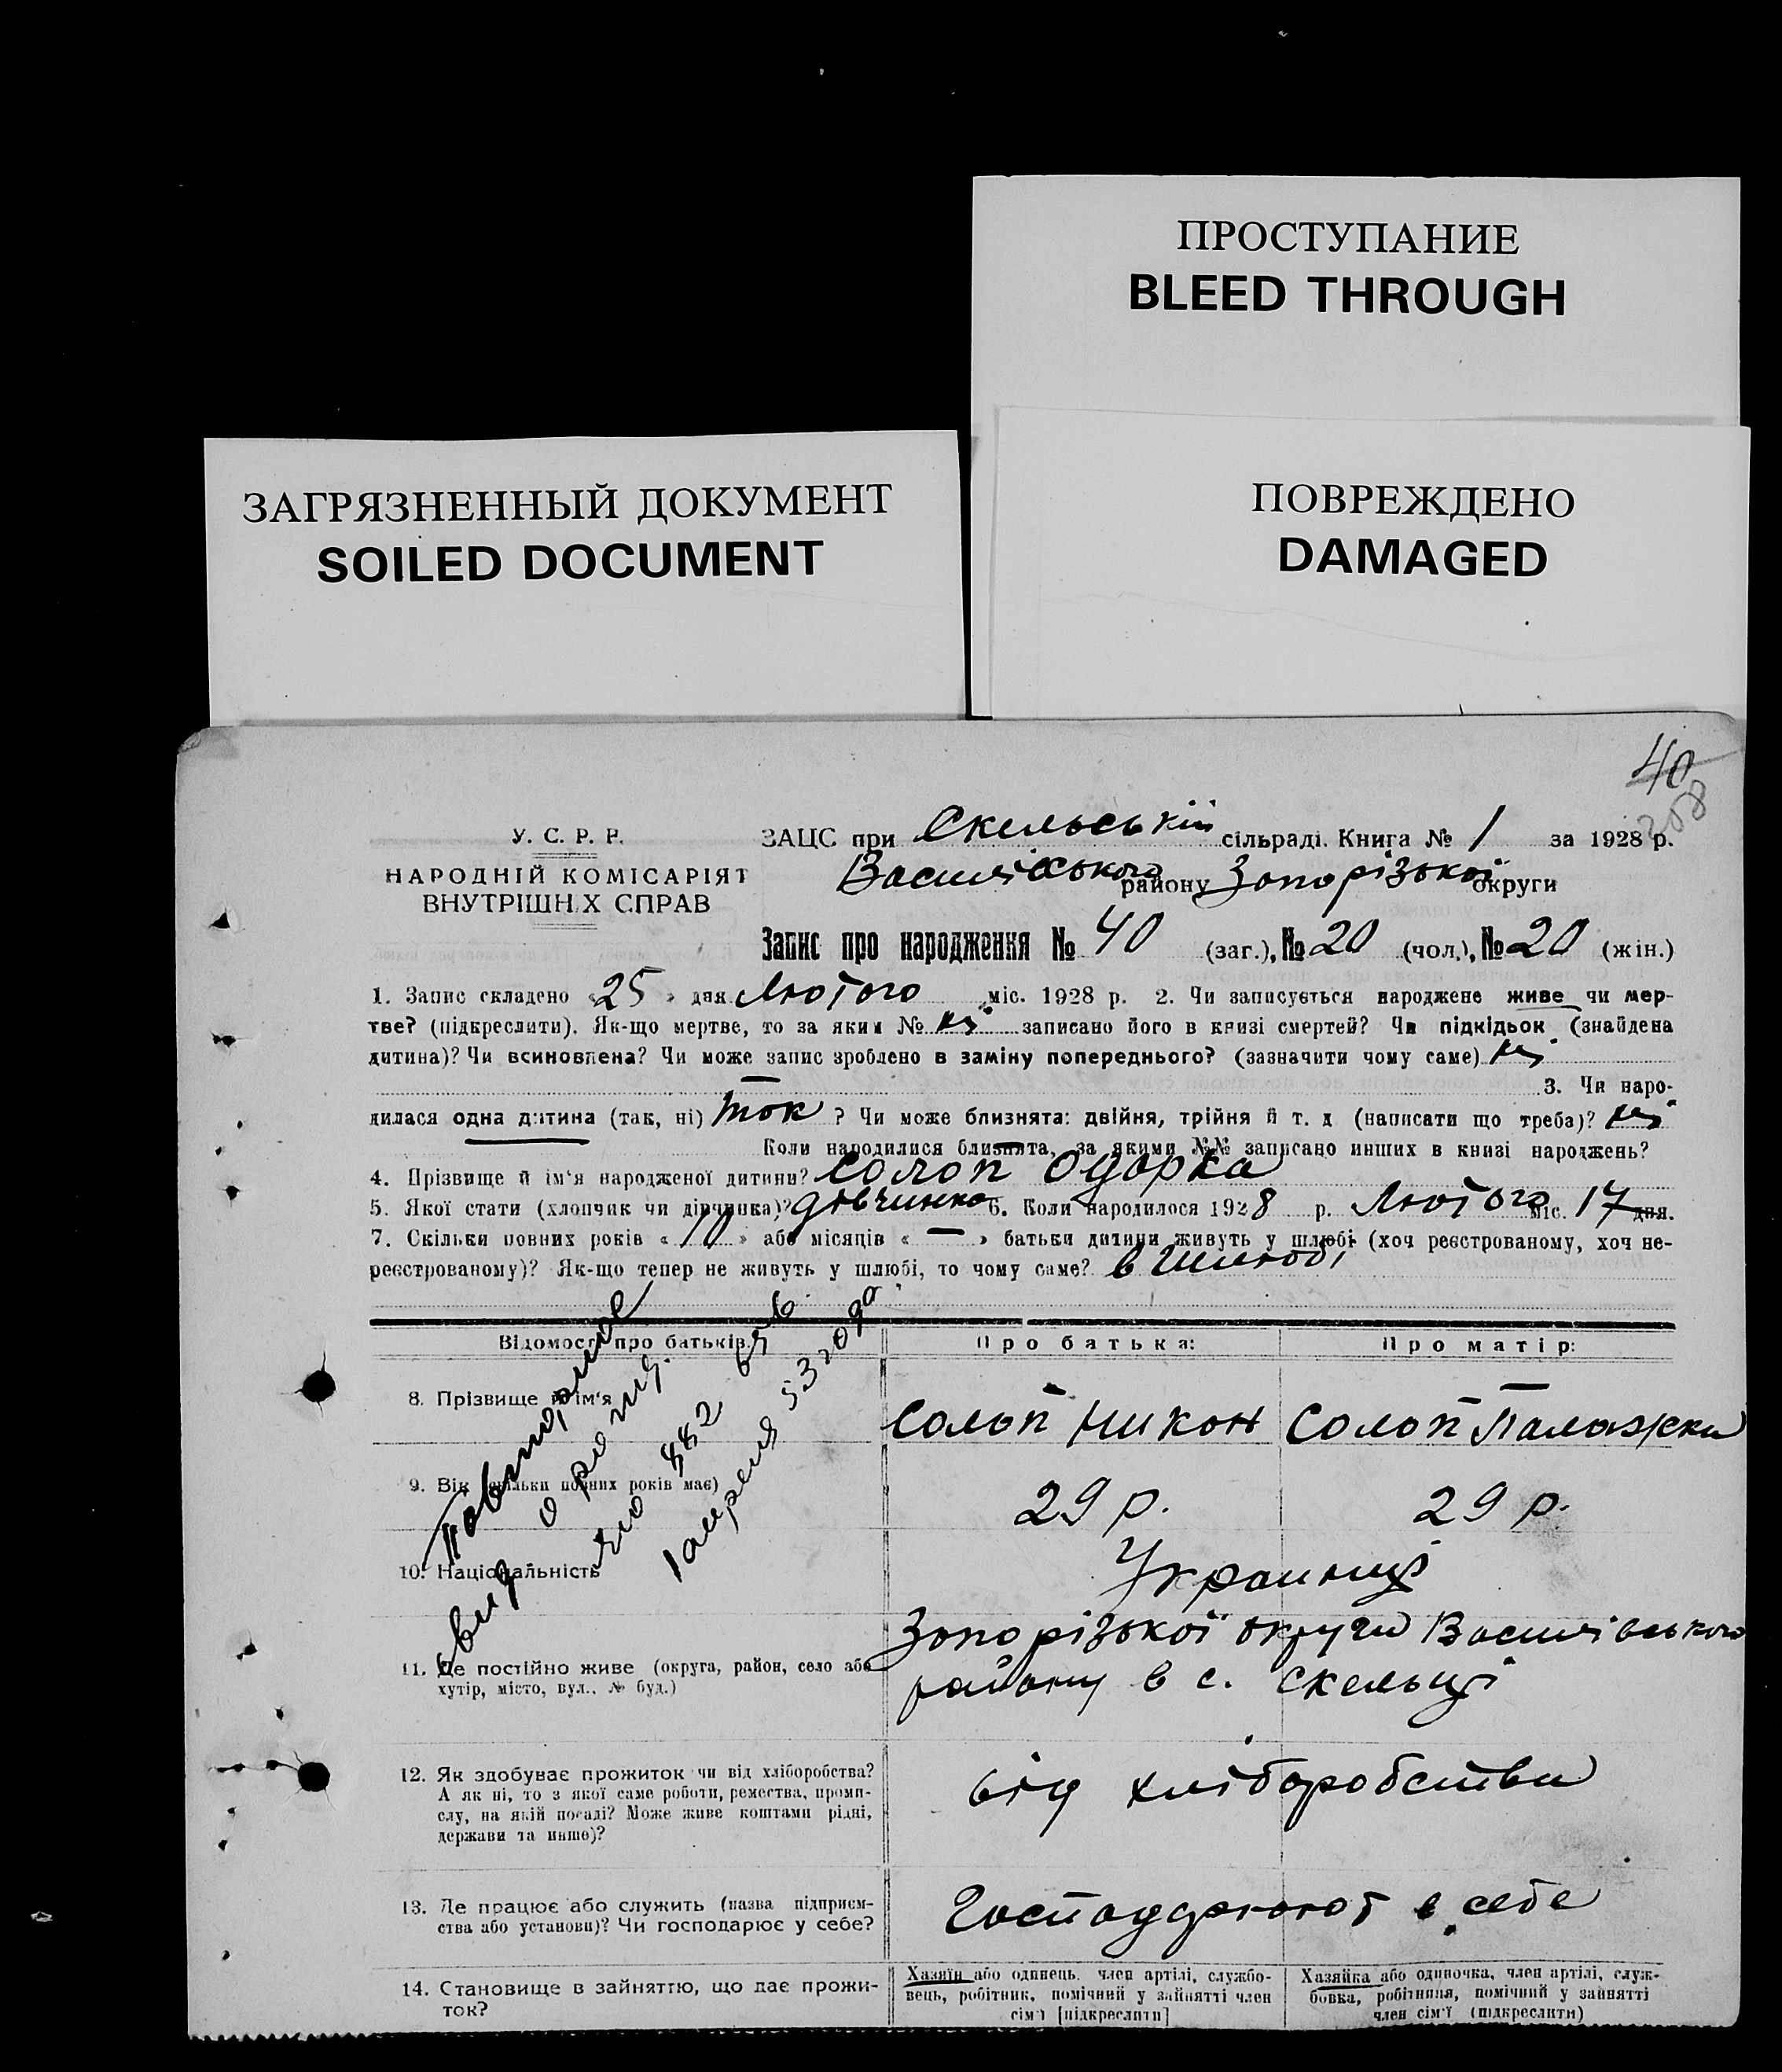 ПРОСТУПАНИЕ
BLEED THROUGH
ЗАГРЯЗНЕННЫЙ ДОКУМЕНТ
SOILED DOCUMENT
ПОВРЕЖДЕНО
DAMAGED
40
У. С. Р. Р.
НАРОДНІЙ КОМІСАРІЯТ
ВНУТРІШНІХ СПРАВ
ЗАЦС при Скельській сільраді. Книга № 1 за 1928 р.
Василівського району Запорізької округи
Запис про народження № 40 (заг.), № 20 (чол.), № 20 (жін.)
1. Запис складено «25» дня Лютого міс. 1928 р. 2. Чи записується народжене живе чи мер-
тве? (підкреслити). Як-що мертве, то за яким № ні записано його в книзі смертей? Чи підкідьок (знайдена
дитина)? Чи всиновлена? Чи може запис зроблено в заміну попереднього? (зазначити чому саме) ні
3. Чи наро-
дилася одна дитина (так, ні) так ? Чи може близнята: двійня, трійня й т. д (написати що треба)? ні
Коли народилися близнята, за якими №№ записано инших в книзі народжень?
4. Прізвище й ім'я народженої дитини? Солоп Одарка
5. Якої стати (хлопчик чи дівчинка)? дівчинка 6. Коли народилося 1928 р. Лютого міс. 17 дня.
7. Скільки повних років «10» або місяців «—» батьки дитини живуть у шлюбі (хоч реєстрованому, хоч не-
реєстрованому)? Як-що тепер не живуть у шлюбі, то чому саме? в шлюбі
Відомості про батьків. Про батька: Про матір:
8. Прізвище й ім'я Солоп Никон Солоп Палажка
9. Вік (скільки повних років має) 29 р. 29 р.
10. Національність Украинці
11. Де постійно живе (округа, район, село або
хутір, місто, вул., № буд.)
Запорізької округи Василівського
району в с. Скельці
12. Як здобуває прожиток чи від хліборобства?
А як ні, то з якої саме роботи, ремества, проми-
слу, на якій посаді? Може живе коштами рідні,
держави та инше)?
від хліборобства
13. Де працює або служить (назва підприєм-
ства або установи)? Чи господарює у себе?
Господарюют в себе
14. Становище в зайняттю, що дає прожи-
ток?
Хазяїн або одинець, член артілі, службо-
вець, робітник, помічний у зайнятті член
сім'ї [підкреслити]
Хазяйка або одиночка, член артілі, служ-
бовка, робітниця, помічний у зайнятті
член сім'ї (підкреслити)
Повторное
свид о рожд.
882
1 апреля 53 года